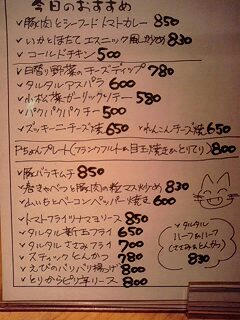 今日のおすすめ
豚肉とシーフードトマトカレー 850
いかとほたて エスニック風炒め 830
コールドチキン 500
日替り野菜のチーズディップ 780
タルタルアスパラ 600
小松菜ガーリックソテー 580
パクパクパクチー 500
ズッキーニチーズ焼 650 れんこんチーズ焼 650
Pちょんプレート(フランクフルト&目玉焼き&とりてり) 800
豚バラキムチ 850
春きゃべつと豚肉の粒マス炒め 830
山いもとベーコンペッパー焼き 600
トマトフライツナマヨソース 850
タルタル新玉フライ 650
タルタルささみフライ 700
スティックとんかつ 780
えびのパリパリ揚げ 800
とりからピリ辛ソース 800
タルタル
ハーフ&ハーフ
(ささみ&とんかつ)
830